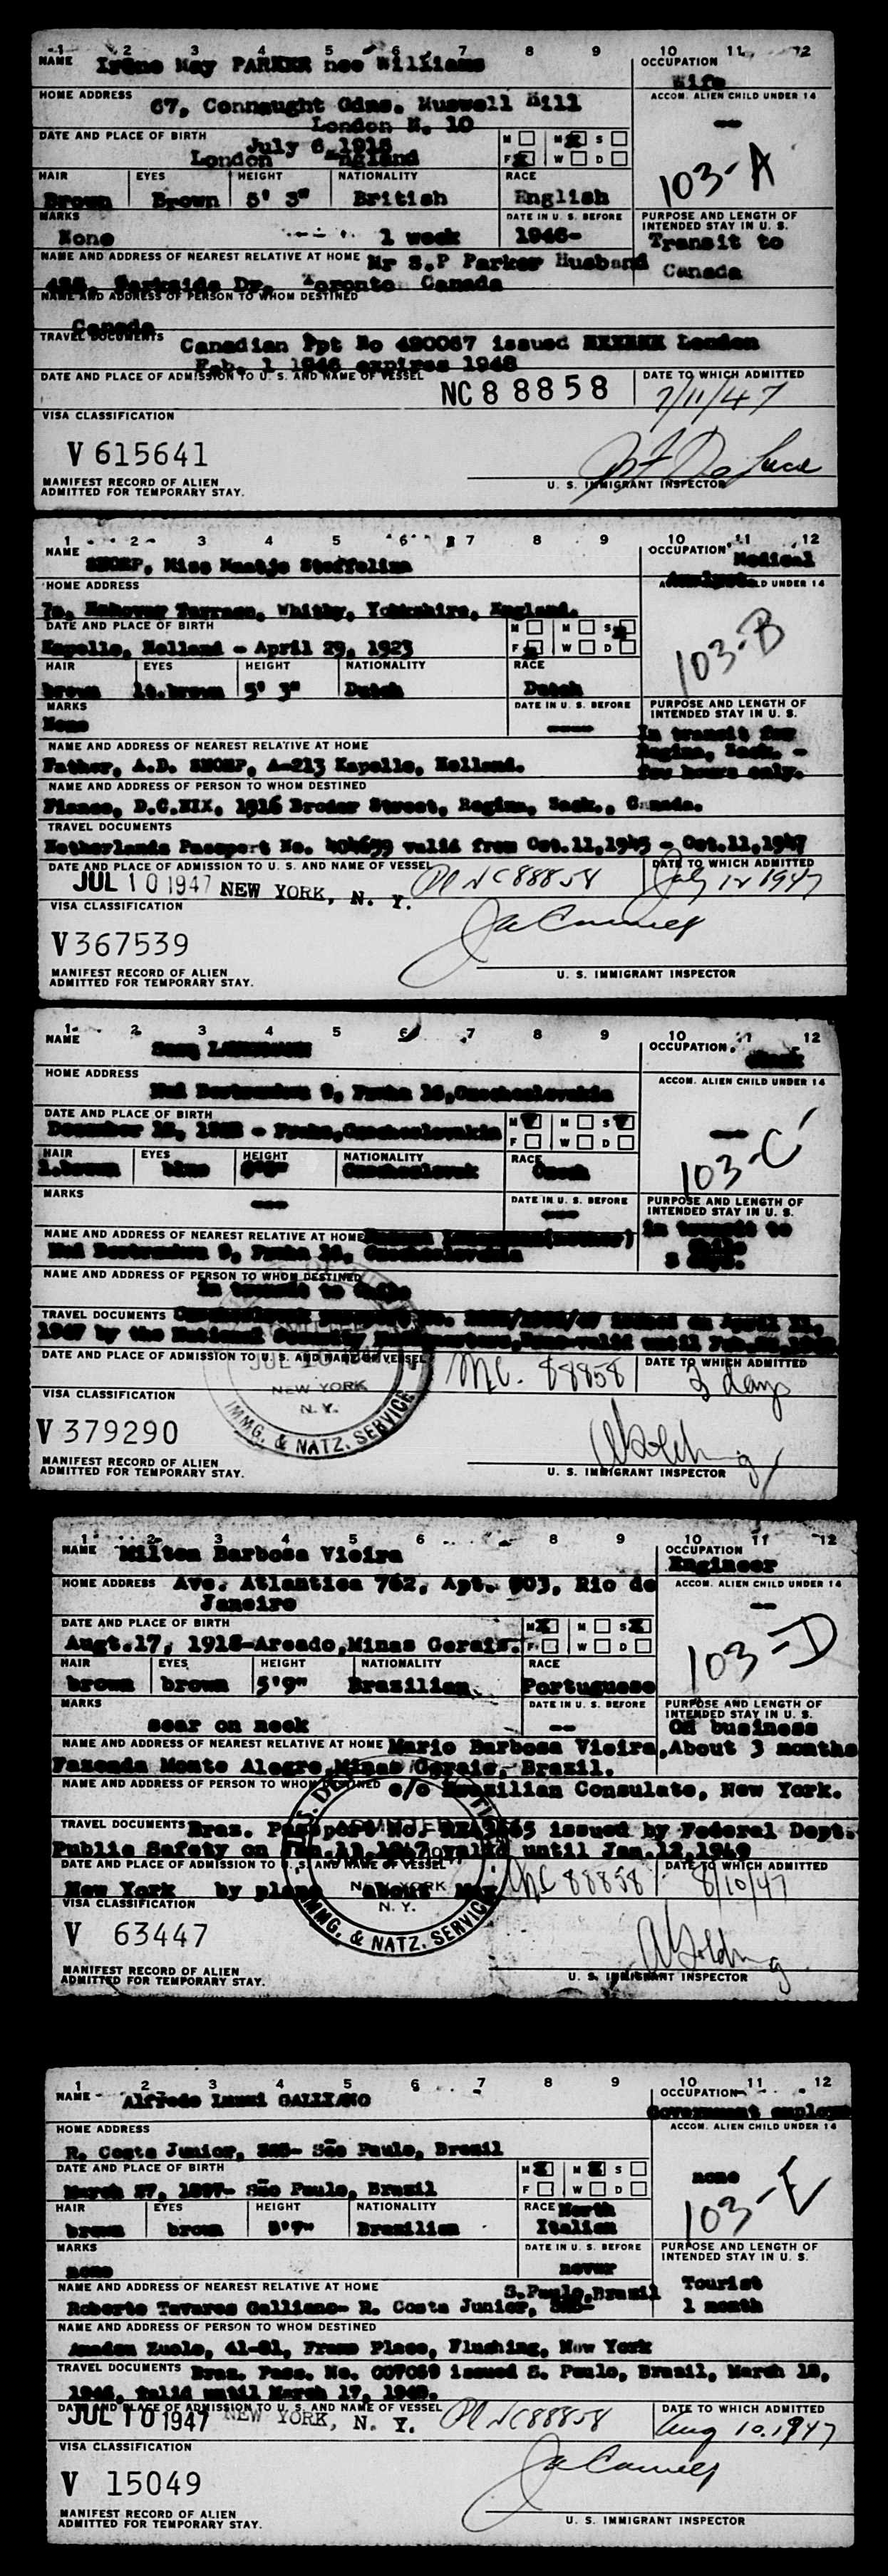 1 2 3 4 5 6 7 8 9 10 11 12
NAME Irene May PARKER nee Williams
OCCUPATION Wife
HOME ADDRESS 67, Connaught Gdns. Muswell Hill
London N. 10
ACCOM. ALIEN CHILD UNDER 14
—
DATE AND PLACE OF BIRTH July 6 1918
London England
M M S
F W D
103-A
HAIR EYES HEIGHT NATIONALITY RACE
Brown Brown 5' 3" British English
MARKS DATE IN U. S. BEFORE PURPOSE AND LENGTH OF INTENDED STAY IN U. S.
None 1 week 1946- Transit to
Canada
NAME AND ADDRESS OF NEAREST RELATIVE AT HOME Mr S.P Parker Husband
Parkside Dr. Toronto Canada
NAME AND ADDRESS OF PERSON TO WHOM DESTINED
Canada
TRAVEL DOCUMENTS Canadian Ppt No 420067 issued London
Feb. 1 1946 expires 1948
DATE AND PLACE OF ADMISSION TO U. S. AND NAME OF VESSEL NC 8 8 8 5 8 DATE TO WHICH ADMITTED
7/11/47
VISA CLASSIFICATION
V 615641
MANIFEST RECORD OF ALIEN
ADMITTED FOR TEMPORARY STAY.
U. S. IMMIGRANT INSPECTOR
1 2 3 4 5 6 7 8 9 10 11 12
NAME Miss Maatje Stoffelina
OCCUPATION Medical
Analyst
HOME ADDRESS
Hanover Terrace, Whitby, Yorkshire, England.
DATE AND PLACE OF BIRTH
Kapelle, Holland - April 29, 1923
M M S
F W D
103-B
HAIR EYES HEIGHT NATIONALITY RACE
brown lt.brown 5' 3" Dutch Dutch
MARKS DATE IN U. S. BEFORE PURPOSE AND LENGTH OF INTENDED STAY IN U. S.
None — In transit for
Regina, Sask. -
few hours only.
NAME AND ADDRESS OF NEAREST RELATIVE AT HOME
Father, A.D. A-213 Kapelle, Holland.
NAME AND ADDRESS OF PERSON TO WHOM DESTINED
Fiance, D.C.HIX, 1916 Broder Street, Regina, Sask., Canada.
TRAVEL DOCUMENTS
Netherlands Passport No. 404699 valid from Oct.11,1945 - Oct.11,1947
DATE AND PLACE OF ADMISSION TO U. S. AND NAME OF VESSEL DATE TO WHICH ADMITTED
JUL 10 1947 NEW YORK, N. Y. Pl NC88858 July 12 1947
VISA CLASSIFICATION
V367539
MANIFEST RECORD OF ALIEN
ADMITTED FOR TEMPORARY STAY.
U. S. IMMIGRANT INSPECTOR
1 2 3 4 5 6 7 8 9 10 11 12
NAME
OCCUPATION
HOME ADDRESS
ACCOM. ALIEN CHILD UNDER 14
9, Praha 16, Czechoslovakia
—
DATE AND PLACE OF BIRTH
December - Praha, Czechoslovakia
M M S
F W D
103-C
HAIR EYES HEIGHT NATIONALITY RACE
l.brown blue Czechoslovak Czech
MARKS DATE IN U. S. BEFORE PURPOSE AND LENGTH OF INTENDED STAY IN U. S.
— — in transit to
days.
NAME AND ADDRESS OF NEAREST RELATIVE AT HOME (mother)
9, Praha 16, Czechoslovakia
NAME AND ADDRESS OF PERSON TO WHOM DESTINED
in transit to
TRAVEL DOCUMENTS
1947 by the National Security valid until
DATE AND PLACE OF ADMISSION TO U. S. AND NAME OF VESSEL NC. 88858 DATE TO WHICH ADMITTED
JUL NEW YORK N. Y. IMMG. & NATZ. SERVICE
days
VISA CLASSIFICATION
V 379290
MANIFEST RECORD OF ALIEN
ADMITTED FOR TEMPORARY STAY.
U. S. IMMIGRANT INSPECTOR
1 2 3 4 5 6 8 9 10 11 12
NAME Milton Barbosa Vieira
OCCUPATION Engineer
HOME ADDRESS Ave. Atlantica 762, Apt. 903, Rio de
Janeiro
ACCOM. ALIEN CHILD UNDER 14
—
DATE AND PLACE OF BIRTH
Augt.17, 1918-Areado,Minas Gerais.
M M S
F W D
103-D
HAIR EYES HEIGHT NATIONALITY RACE
brown brown 5'9" Brazilian Portuguese
MARKS DATE IN U. S. BEFORE PURPOSE AND LENGTH OF INTENDED STAY IN U. S.
scar on neck — On business
About 3 months
NAME AND ADDRESS OF NEAREST RELATIVE AT HOME Mario Barbosa Vieira,
Fazenda Monte Alegre,Minas Gerais, Brazil.
NAME AND ADDRESS OF PERSON TO WHOM DESTINED c/o Brazilian Consulate, New York.
TRAVEL DOCUMENTS Bras. Passport No. issued by Federal Dept.
Public Safety on Jan.13,1947,valid until Jan.12,1949
DATE AND PLACE OF ADMISSION TO U. S. AND NAME OF VESSEL DATE TO WHICH ADMITTED
New York by plane about May NC 88858 8/10/47
NEW YORK N. Y. IMMG. & NATZ. SERVICE
VISA CLASSIFICATION
V 63447
MANIFEST RECORD OF ALIEN
ADMITTED FOR TEMPORARY STAY.
U. S. IMMIGRANT INSPECTOR
1 2 3 4 5 6 7 8 9 10 11 12
NAME Alfredo GALLIANO
OCCUPATION Government employe
HOME ADDRESS
R. Costa Junior, São Paulo, Brasil
ACCOM. ALIEN CHILD UNDER 14
none
DATE AND PLACE OF BIRTH
March 27, 1897- São Paulo, Brazil
M M S
F W D
103-E
HAIR EYES HEIGHT NATIONALITY RACE North
brown brown 5'7" Brazilian Italian
MARKS DATE IN U. S. BEFORE PURPOSE AND LENGTH OF INTENDED STAY IN U. S.
none never Tourist
1 month
NAME AND ADDRESS OF NEAREST RELATIVE AT HOME S.Paulo,Brazil
Roberto Tavares Galliano- R. Costa Junior,
NAME AND ADDRESS OF PERSON TO WHOM DESTINED
Amadeu Zuolo, 41-81, Frame Place, Flushing, New York
TRAVEL DOCUMENTS Bras. Pass. No. 007069 issued S. Paulo, Brasil, March 18,
valid until March 17,
DATE AND PLACE OF ADMISSION TO U. S. AND NAME OF VESSEL DATE TO WHICH ADMITTED
JUL 10 1947 NEW YORK, N. Y. Pl NC88858 Aug 10.1947
VISA CLASSIFICATION
V 15049
MANIFEST RECORD OF ALIEN
ADMITTED FOR TEMPORARY STAY.
U. S. IMMIGRANT INSPECTOR